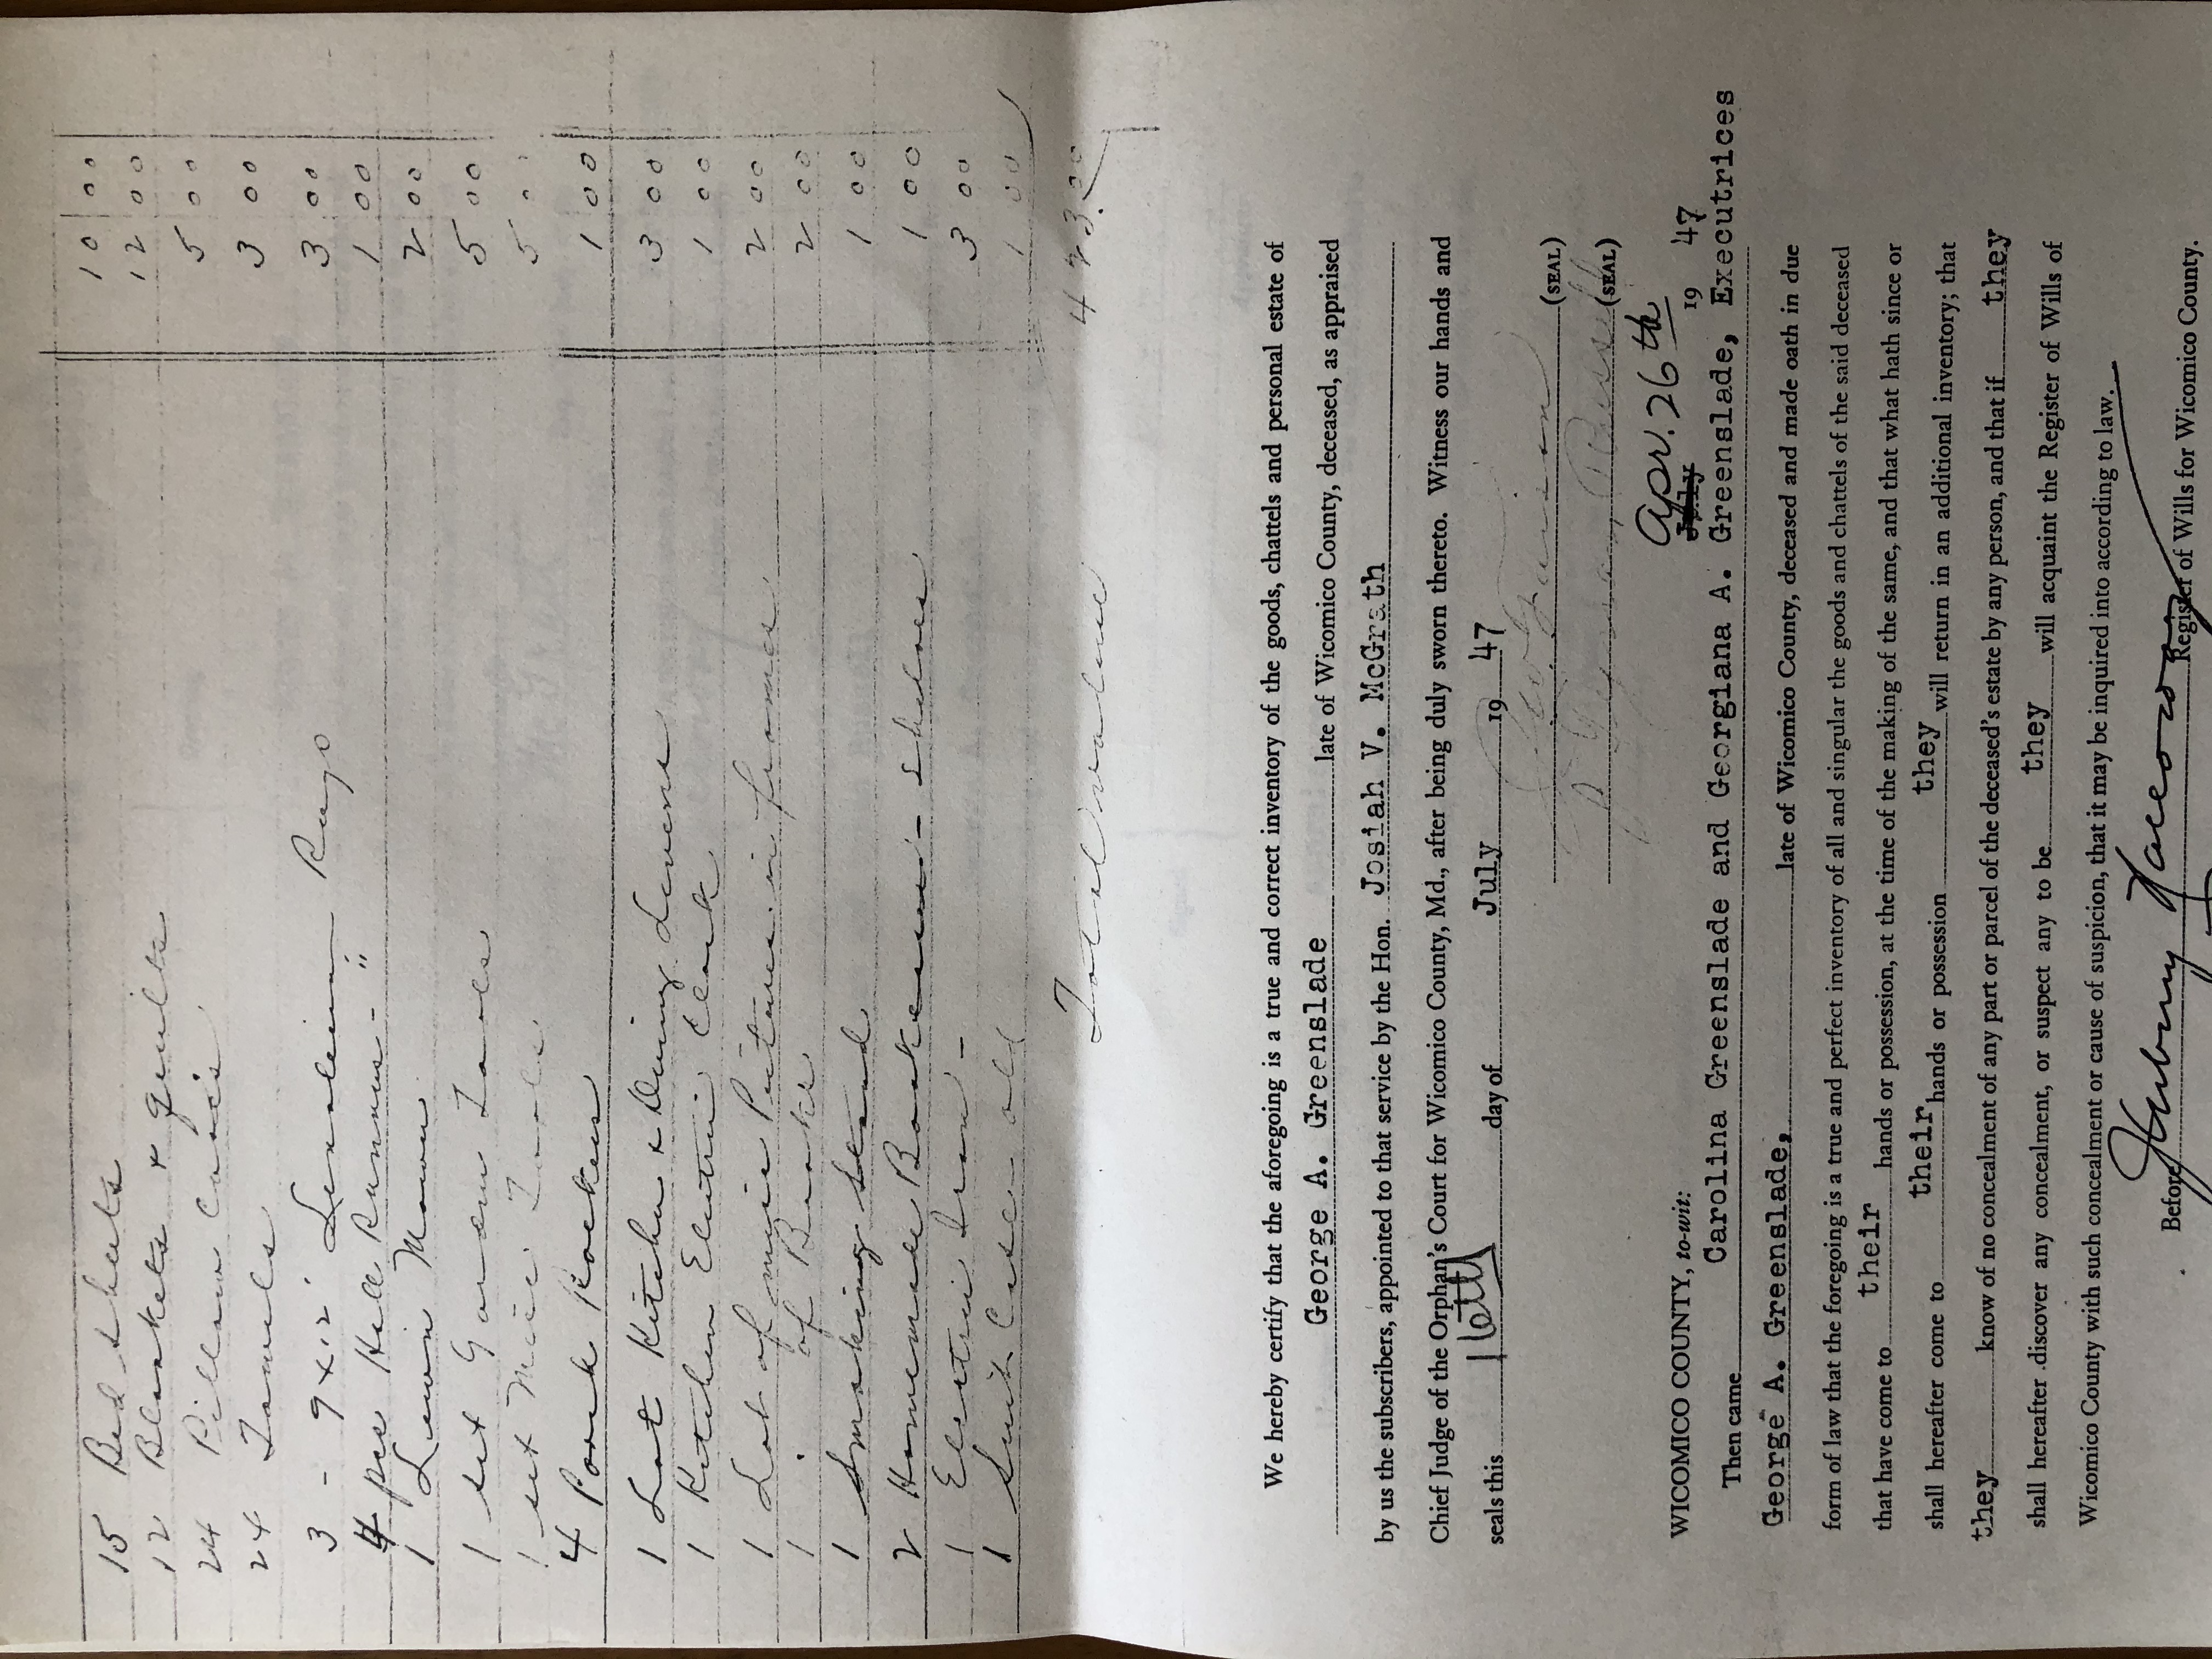 15 Bed sheets 10 00
12 Blankets & quilts 12 00
24 Pillow Cases 5 00
24 Towels 3 00
3 - 9 x 12' Linoleum Rugs 3 00
4 pcs Hall Runners - " 1 00
1 Lawn Mower 2 00
1 set Garden Tools 5 00
1 set Misc Tools 5 00
4 Porch Rockers 1 00
1 Lot Kitchen & Dining Linens 3 00
1 Kitchen Electric Clock 1 00
1 Lot of misc Pictures in frames 2 00
1 " of Books 2 00
1 Smoking Stand 1 00
2 Homemade Bookcases - shelves 1 00
1 Electric Iron - 3 00
1 Suit Case - old 1 00
Total value 423.00
We hereby certify that the aforegoing is a true and correct inventory of the goods, chattels and personal estate of
George A. Greenslade late of Wicomico County, deceased, as appraised
by us the subscribers, appointed to that service by the Hon. Josiah V. McGrath
Chief Judge of the Orphan's Court for Wicomico County, Md., after being duly sworn thereto. Witness our hands and
seals this 16th day of July 19 47
(SEAL)
Russell (SEAL)
Apr. 26th
WICOMICO COUNTY, to-wit: July 19 47
Then came Carolina Greenslade and Georgiana A. Greenslade, Executrices
George A. Greenslade, late of Wicomico County, deceased and made oath in due
form of law that the foregoing is a true and perfect inventory of all and singular the goods and chattels of the said deceased
that have come to their hands or possession, at the time of the making of the same, and that what hath since or
shall hereafter come to their hands or possession they will return in an additional inventory; that
they know of no concealment of any part or parcel of the deceased's estate by any person, and that if they
shall hereafter discover any concealment, or suspect any to be they will acquaint the Register of Wills of
Wicomico County with such concealment or cause of suspicion, that it may be inquired into according to law.
Before Holloway Register of Wills for Wicomico County.